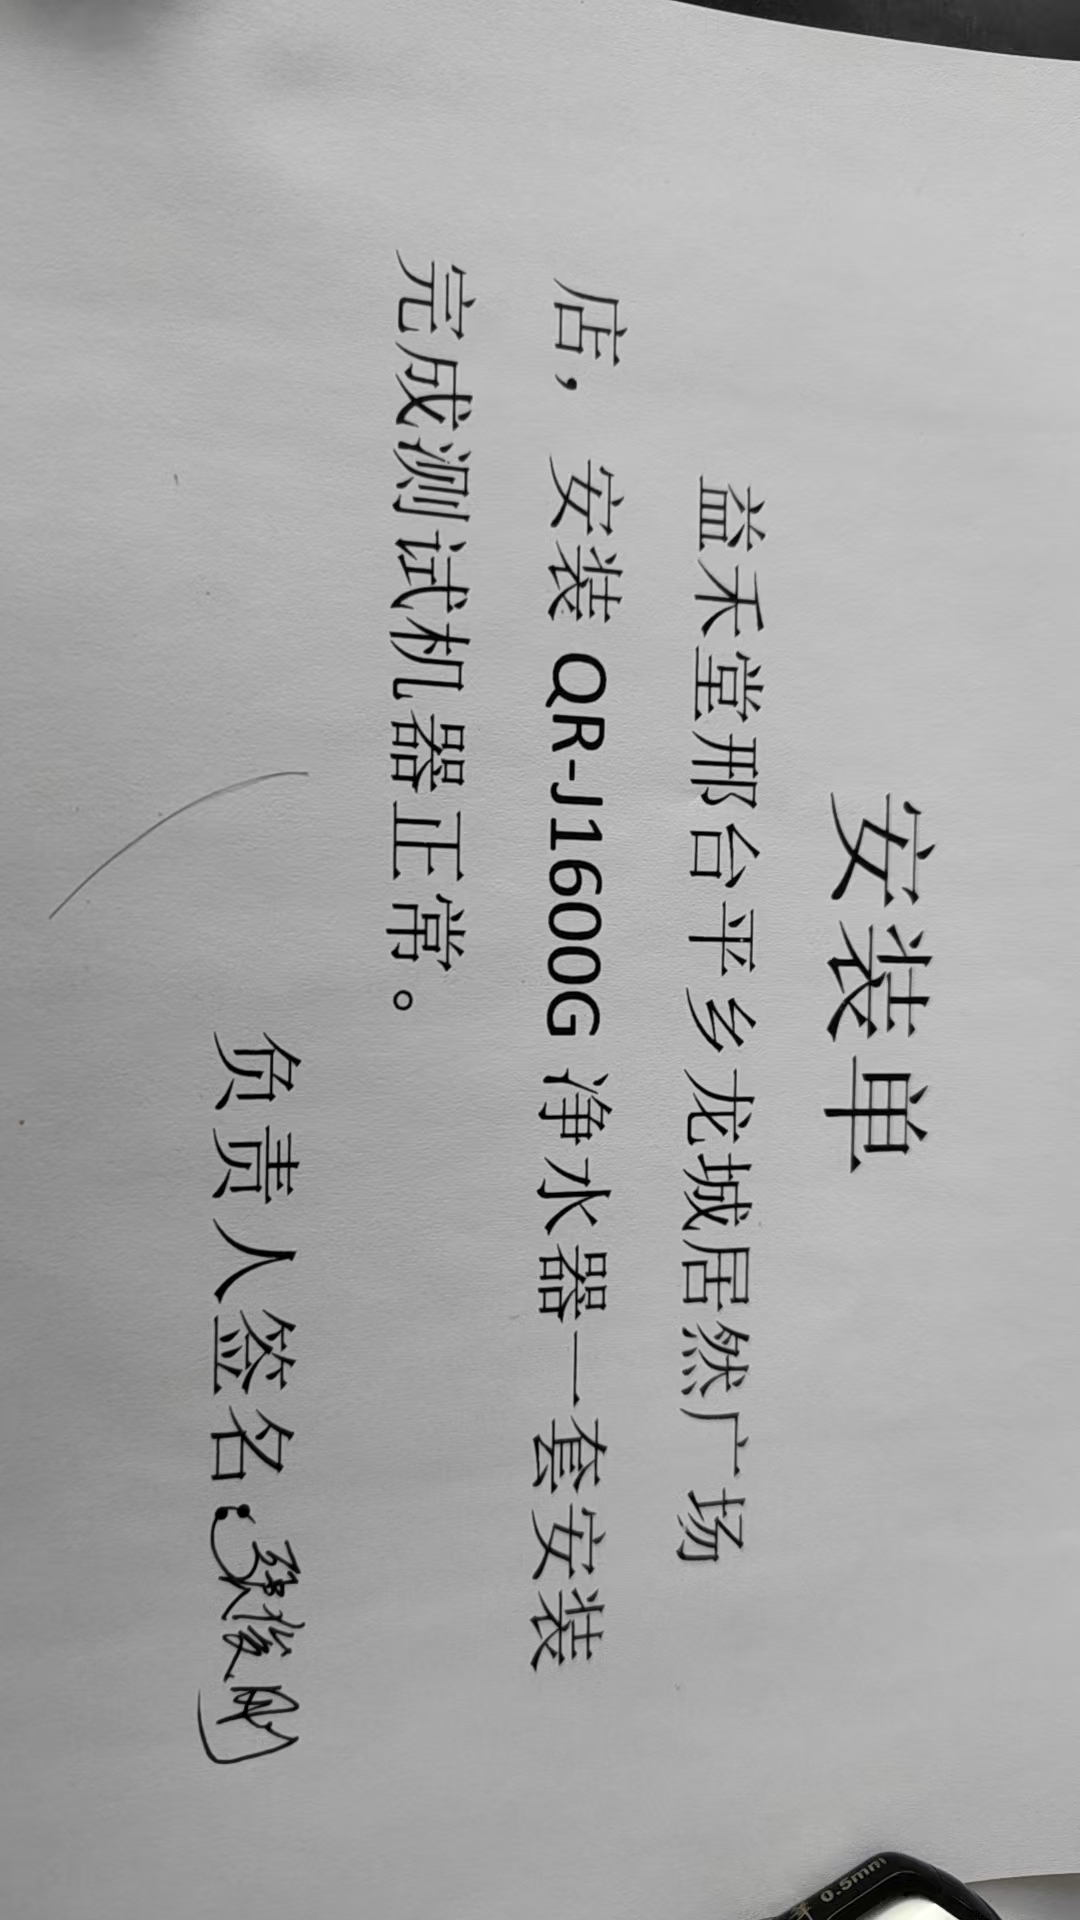 安装单
益禾堂邢台平乡龙城居然广场
店，安装 QR-J1600G 净水器一套安装
完成测试机器正常。
负责人签名：张俊刚
0.5mm